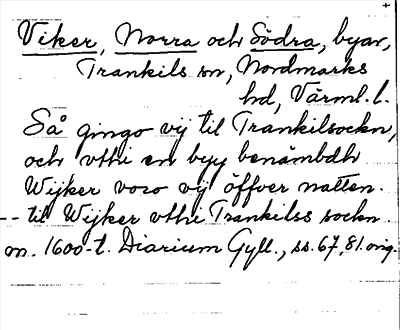 Viker, Norra och Södra, byar,
Trankils sn, Nordmarks
hd, Värml. l.
Så gingo vij til Trankilsockn,
och vthi en byy benämbdh
Wijker voro vij öffver natten.
-- til Wijker vthi Trankilss sockn.
m. 1600-t. Diarium Gyll., ss. 67, 81. orig.